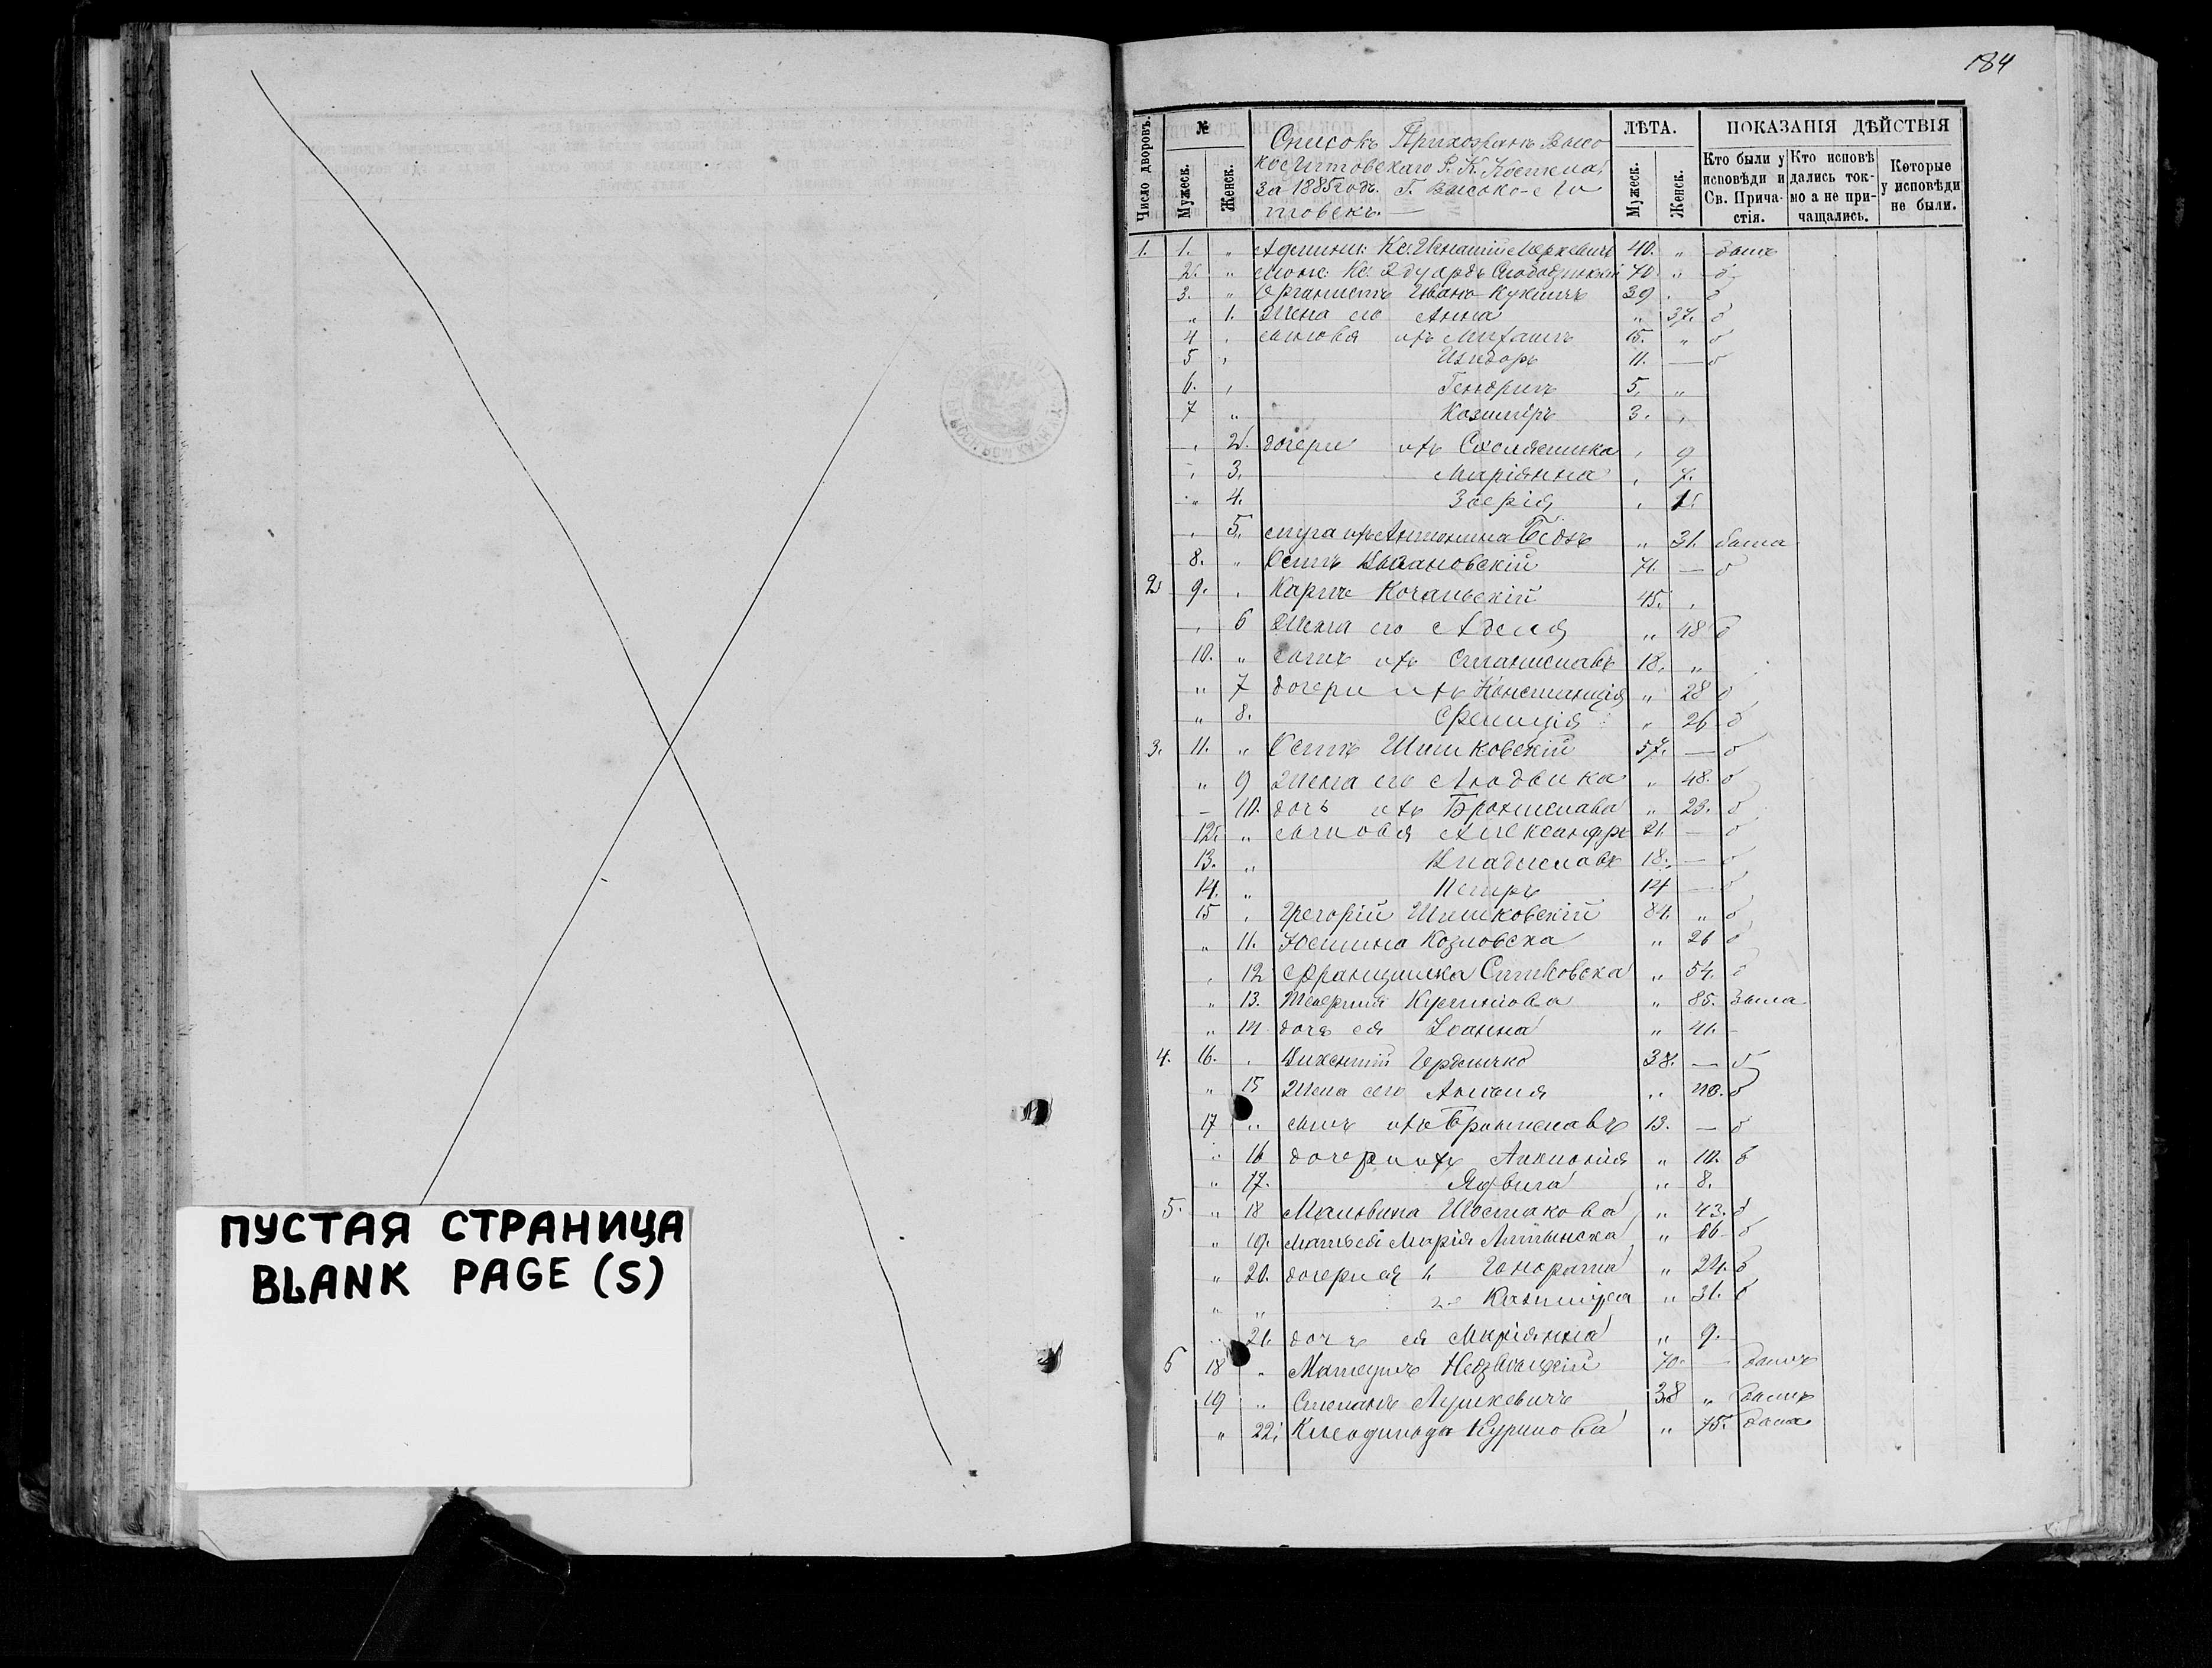 ПУСТАЯ СТРАНИЦА
BLANK PAGE (S)
184
Число дворовъ.
№
Мужеск.
Женск.
Списокъ Прихожанъ Высо
колитовскаго Р. К. Костела
за 1885 годъ. Г. Высоко-Ли
товскъ. —
ЛѢТА.
Мужеск.
Женск.
ПОКАЗАНІЯ ДѢЙСТВІЯ
Кто были у исповѣди и Св. Прича- стія.
Кто исповѣ дались ток- мо а не при- чащались.
Которые у исповѣди не были.
1. 1. „ Кс. Игнатій 40. „ былъ
2. „ Ксе. Эдуардъ 70. „ б
3. „ Органистъ Иванъ 39 б
„ 1. Жена его Анна „ 37. б
4 „ сыновья ихъ Михаилъ 15. „ б
5 „ Изидоръ 11. — б
6. „ Гендрихъ 5. „
7 „ Казиміръ 3. „
„ 2. дочери ихъ Схолястика „ 9
„ 3. Маріянна „ 7.
„ 4. Зофія „ 1.
„ 5. слуга ихъ Антонина „ 31. была
8. „ Осипъ 71. — б
2 9. „ Карлъ Кочаньскій 45. „
„ 6 Жена его Аделя „ 48 б
10. „ сынъ ихъ Станиславъ 18. „
„ 7 дочери ихъ Констанція „ 28 б
„ 8. Фелиція „ 26 б
3. 11. „ Осипъ Шишковскій 57. — б
„ 9 Жена его Людвика „ 48. б
— 10. дочь ихъ Брониславa „ 23. б
12. „ сыновья Александръ 21. — б
13. „ Владиславъ 18. — б
14. „ Петръ 14 — б
15 „ Грегорій Шишковскій 84. „ б
„ 11. Юстина Козловска „ 26 б
„ 12 Францишка „ 54. б
„ 13. „ 85. была
„ 14 дочь ея Іоанна „ 41. –
4. 16. „ Викентій 38. — б
„ 15 Жена его „ б
17 „ сынъ ихъ Брониславъ 13. — б
„ 16 дочери ихъ „ 10. б
„ 17. Ядвига „ 8.
5. „ 18 Мальвина Шостакова „ 43. б
„ 19. мать ея Марія „ 66 б
„ 20. дочери ея Гонората „ 24. б
„ „ Казимира „ 31. б
„ 21. дочь ея Маріянна „ 9.
6 18 „ Матеушъ 70. — былъ
19 „ Степанъ 38 „ былъ
„ 22. „ 75. была